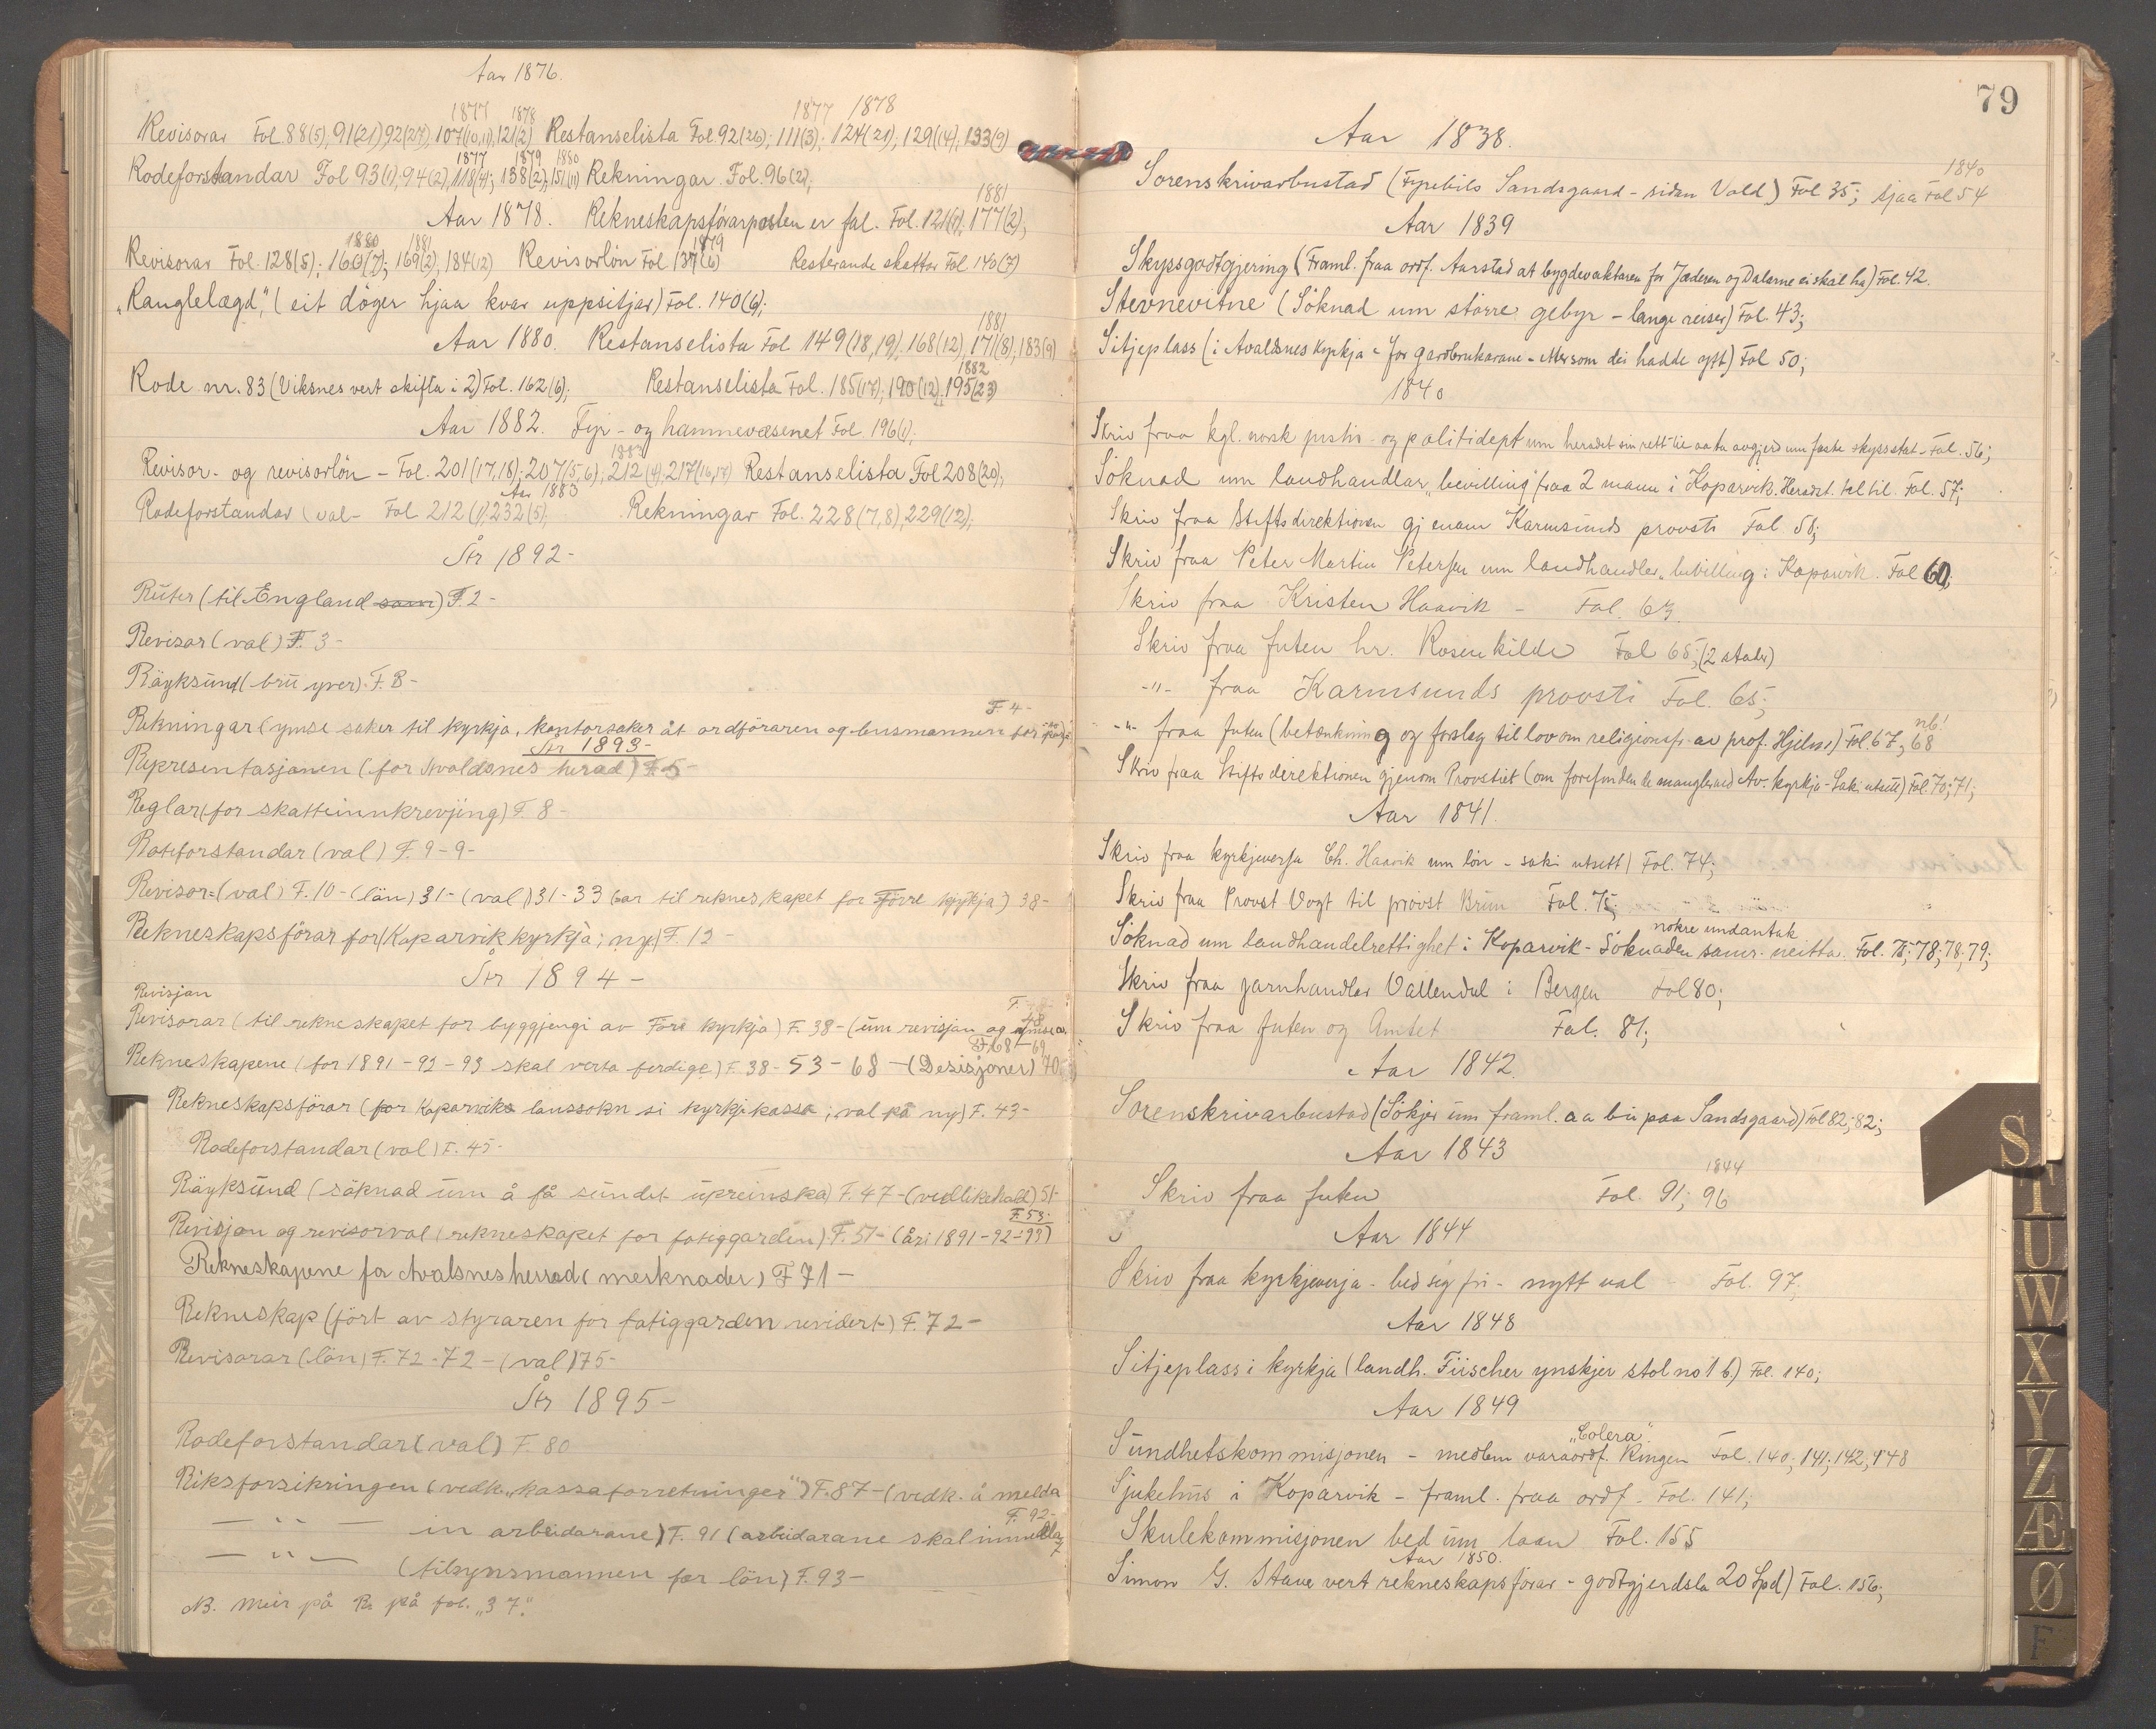 Aar 1876.
1877 1878 1877 1878
Revisorar Fol. 88(5), 91(21), 92(27), 107(10,11), 121(2) Restanselista Fol. 92(26); 111(3); 124(21); 129(14), 133(9)
1877 1879 1880
Rodeforstandar Fol 93(1), 94(2), 118(4); 138(2), 151(11) Rekningar. Fol. 96(2);
1881
Aar 1878. Rekneskapsförarposten er fal. Fol. 121(1); 177(2);
1880 1881 1879
Revisorar Fol. 128(5); 160(7); 169(2), 184(12) Revisorlön Fol 137(6) Resterande skattar Fol 140(7)
"Ranglelægd", (eit döger hjaa kvar uppsitjar) Fol. 140(6);
1881
Aar 1880. Restanselista Fol 149(18,19), 168(12), 171(8), 183(9)
1882
Rode nr. 83 (Viksnes vert skifta i 2) Fol. 162(6); Restanselista Fol. 185(17); 190(12), 195(23)
Aar 1882. Fyr- og hamnevæsenet Fol. 196(1);
Revisor- og revisorlön - Fol. 201(17,18); 207(5,6); 212(4), 217(16,17) Restanselista Fol 208(20);
Aar 1883
Rodeforstandar (val- Fol 212(1), 232(5), Rekningar Fol. 228(7,8), 229(12);
År 1892-
Ruter (til England som) F. 2-
Revisor (val) F. 3-
Röyksund (bru yver). F. 8-
F. 4-
Rekningar (ymse saker til kyrkja, kontorsaker åt ordföraren og lensmannen for
År 1893-
Representasjonen (for Avaldsnes herad) F. 5-
Reglar (for skatteinnkrevjing) F. 8-
Roteforstandar (val) F. 9-9-
Revisor- (val) F. 10- (lön) 31- (val) 31-33 (var til rekneskapet for Förre kyrkja) 38-
Rekneskapsförar for (Koparvik kyrkja; ny) F. 12-
År 1894-
Revisjon
Revisorar (til rekneskapet for byggjengi av Före kyrkja) F. 38- (um revisjon og ymse a.
F. 68-69
Rekneskapene (for 1891-92-93 skal verta ferdige) F. 38-53-68- (Desisjoner) 70
Rekneskapsförar (for Koparviks laussokn si kyrkjekassa; val på ny) F. 43-
Rodeforstandar (val) F. 45-
Röyksund (söknad um å få sundet upreinska) F. 47- (vedlikehald) 51-
F. 53-
Revisjon og revisorval (rekneskapet for fatiggarden). F. 51- (åri 1891-92-93)
Rekneskapene for Avalsnes herrad (merknader) F 71-
Rekneskap (fört av styraren for fatiggarden revidert) F. 72-
Revisorar (lön) F. 72-72- (val) 75-
År 1895-
Rodeforstandar (val) F. 80
Riksforsikringen (vedk. "kassaforretninger") F. 87- (vedk. å melda
F. 92-
— " — in arbeidarane) F. 91 (arbeidarane skal innmelda
— " — (tilsynsmannen for lön) F. 93-
NB. Meir på R. på fol. "37".
79
Aar 1838.
1840
Sorenskrivarbustad (Fyrebils Sandsgaard - sidan Vold) Fol 35; sjaa Fol 54
Aar 1839
Skyssgodtgjering (Framl. fraa ordf. Aarstad at bygdevaktaren for Jæderen og Dalarne ei skal ha) Fol. 42.
Stevnevitne (Söknad um större gebyr - lange reiser) Fol. 43;
Sitjeplass (i Avaldsnes kyrkja - for gardbrukarane - Mer som dei hadde aatt) Fol 50;
1840
Skriv fraa kgl. norsk justis- og politidept um heradet sin rett til aa ta avgjerd um faste skysstat - Fol. 56;
Söknad um landhandlar "bevilling" fraa 2 mann i Koparvik. Heradst. tel til. Fol. 57;
Skriv fraa Stiftsdirektionen gjenom Karmsunds provsti Fol 58;
Skriv fraa Peter Martin Petersen um landhandler "bevilling i Koparvik. Fol 60;
Skriv fraa Kristen Haavik - Fol. 63.
Skriv fraa futen hr. Rosenkilde Fol 65; (2 stader)
-"- fraa Karmsunds provsti Fol. 65;
nb!
-"- fraa futen (betænkning og forslag til lov om religionsfr. av prof. Hjelm) Fol. 67; 68
Skriv fraa Stiftsdirektionen gjenom Provstiet (om forefundende mangler ved Av. kyrkja - Saki utsett) Fol. 70; 71;
Aar 1841.
Skriv fraa kyrkjeverja Ch. Haavik um lön - saki utsett) Fol. 74;
Skriv fraa Provst Vogt til provst Brun Fol. 75;
nokre undantak
Söknad um landhandelrettighet i Koparvik - Söknaden sams. neitta. Fol. 75; 78; 78; 79;
Skriv fraa jarnhandlar Vallendal i Bergen Fol 80;
Skriv fraa futen og Amtet Fol. 81;
Aar 1842.
Sorenskrivarbustad (Sökjer um framl. aa bu paa Sandsgaard) Fol 82; 82;
Aar 1843
1844
Skriv fraa futen Fol. 91; 96
Aar 1844
Skriv fraa kyrkjeverja - bed seg fri - nytt val - Fol. 97;
Aar 1848
Sitjeplass i kyrkja (landh. Fiischer ynskjer stol no 16) Fol. 140;
Aar 1849
"Colera".
Sundhetskommisjonen - medlem varaordf. Ringen Fol. 140; 141; 142; 148
Sjukehus i Koparvik - framl. fraa ordf. - Fol. 141;
Skulekommisjonen bed um laan Fol. 155
Aar 1850.
Simon G. Stave vert rekneskapsförar - godtgjerdsla 20 Spd) Fol. 156;
S
T
U
W
X
Y
Z
Æ
Ø
F